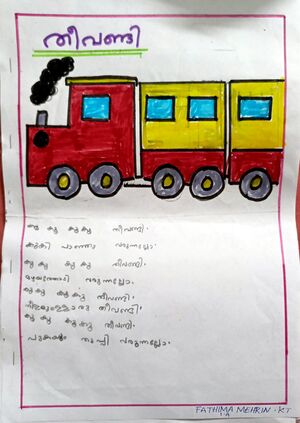 തീവണ്ടി
കൂ കൂ കൂകൂ തീവണ്ടി.
കൂകി പാഞ്ഞു വരുന്നല്ലോ.
കൂ കൂ കൂ കൂ തീവണ്ടി.
വരുന്നല്ലോ.
കൂകൂ കൂകൂ തീവണ്ടി.
നീളമുള്ളൊരു തീവണ്ടി.
കൂ കൂ കൂകൂ തീവണ്ടി.
പുകയും തുപ്പി വരുന്നല്ലോ.
FATHIMA MEHRIN.KT
1A